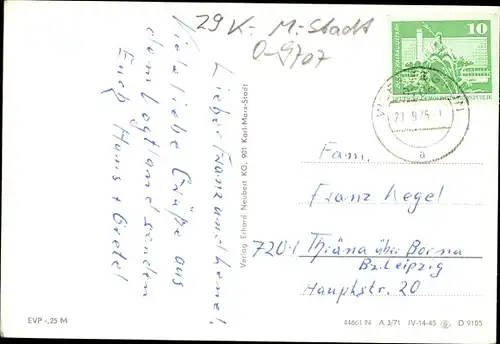 29 K.- M.-Stadt
0-9707
Lieber Franz und Irene!
Viele liebe Grüße aus
dem Vogtland senden
Euch Hans + Gretel
Verlag Erhard Neubert KG, 901 Karl-Marx-Stadt
10
Fam.
Franz Legel
7201 Thräna über Borna
Bz. Leipzig
Hauptstr. 20
EVP -,25 M
44661 N A 3/71 IV-14-45 D 9105